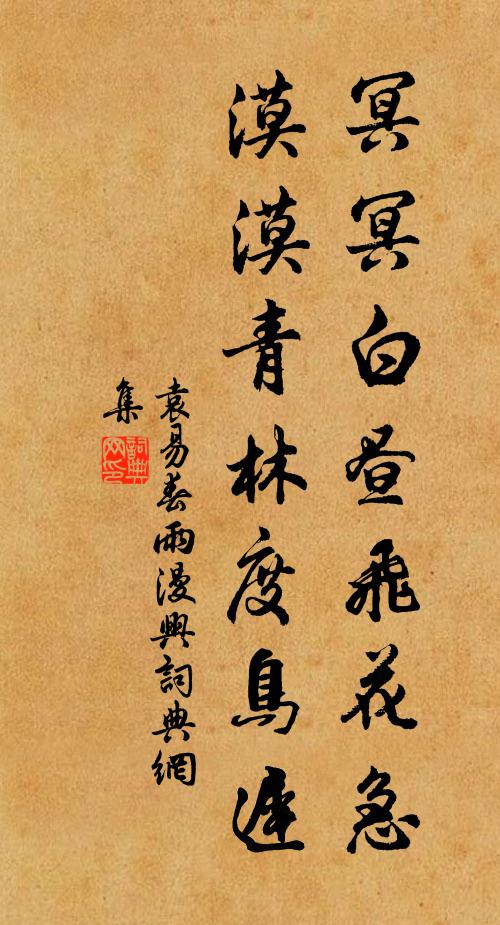 冥冥白昼飛花急
漠漠青林度鳥遲
袁易春雨漫興詞典網
集
詞典
网印